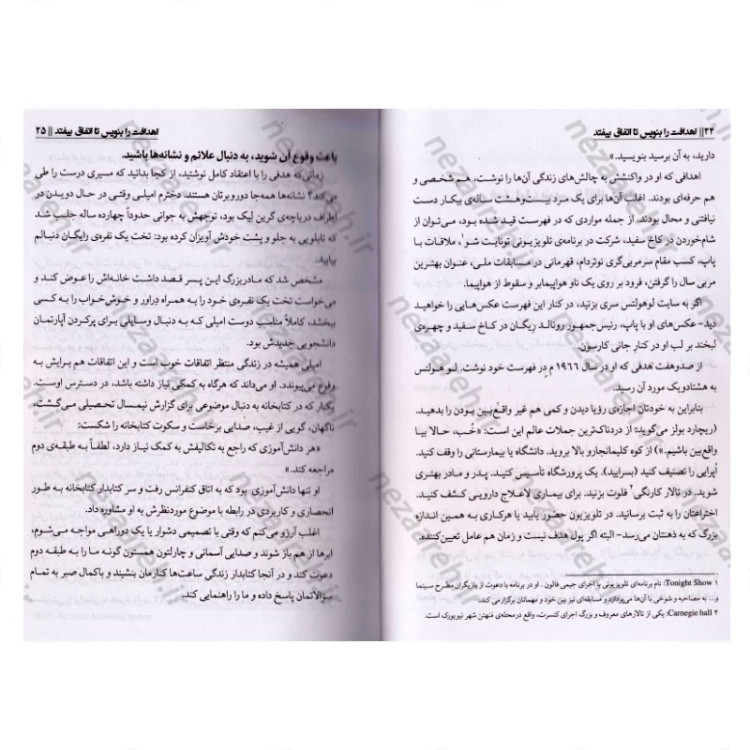 ۲۴ || اهدافت را بنویس تا اتفاق بیفتد
دارید، به آن برسید بنویسید.»
اهدافی که او در واکنشش به چالش‌های زندگی آن‌ها را نوشت، هم‌شخصی و
هم حرفه‌ای بودند. اغلب آن‌ها برای یک مرد بیست‌وهشت ساله‌ی بیکار دست
نیافتنی و محال بودند. از جمله مواردی که در فهرست قید شده بود، می‌توان از
شام‌خوردن در کاخ سفید، شرکت در برنامه‌ی تلویزیونی تونایت شو۱، ملاقات با
پاپ، کسب مقام سرمربی‌گری نوتردام، قهرمانی در مسابقات ملی، عنوان بهترین
مربی سال را گرفتن، فرود بر روی یک ناو هواپیمابر و سقوط از هواپیما.
اگر به سایت لوهولتس سری بزنید، در کنار این فهرست عکس‌هایی را خواهید
دید- عکس‌های او با پاپ، رئیس‌جمهور رونالد ریگان در کاخ سفید و چهره‌ی
لبخند بر لب او در کنار جانی کارسون.
از صدوهفت هدفی که او در سال ۱۹۶۶ م در فهرست خود نوشت، لو هولتس
به هشتادویک مورد آن رسید.
بنابراین به خودتان اجازه‌ی رؤیا دیدن و کمی هم غیر واقع‌بین بودن را بدهید.
(ریچارد بولز می‌گوید: از دردناک‌ترین جملات عالم این است: «خُب، حالا بیا
واقع‌بین باشیم.») از کوه کلیمانجارو بالا بروید. دانشگاه یا بیمارستانی را وقف کنید.
اُپرایی را تصنیف کنید (بسرایید). یک پرورشگاه تأسیس کنید. پدر و مادر بهتری
شوید. در تالار کارنگی۲ فلوت بزنید. برای بیماری لاعلاج دارویی کشف کنید.
اختراعتان را به ثبت برسانید. در تلویزیون حضور یابید یا هرکاری به همین اندازه
بزرگ که به ذهنتان می‌رسد- البته اگر پول هدف نیست و زمان هم عامل تعیین‌کننده.
۱ Tonight Show: نام برنامه‌ای تلویزیونی با اجرای جیمی فالون. او در برنامه با دعوت از بازیگران مطرح سینما
و... به مصاحبه و شوخی با آن‌ها می‌پردازد و مسابقه‌ای نیز بین خود و مهمانان برگزار می‌کند.
۲ Carnegie hall: یکی از تالارهای معروف و بزرگ اجرای کنسرت، واقع درمحله‌ی مَنهتن شهر نیویورک است.
اهدافت را بنویس تا اتفاق بیفتد || ۲۵
باعث وقوع آن شوید، به دنبال علائم و نشانه‌ها باشید.
زمانی که هدفی را با اعتقاد کامل نوشتید، از کجا بدانید که مسیری درست را طی
می‌کند؟ نشانه‌ها همه‌جا دوروبرتان هستند. دخترم امیلی وقتی در حال دویدن در
اطراف دریاچه‌ی گرین لیک بود، توجهش به جوانی حدوداً چهارده ساله جلب شد
که تابلویی به جلو و پشت خودش آویزان کرده بود: تخت یک نفره‌ی رایگان دنبالم
بیایید.
مشخص شد که مادربزرگ این پسر قصد داشت خانه‌اش را عوض کند و
می‌خواست تخت یک نفره‌ی خود را به همراه دِراور و خوش‌خواب را به کسی
ببخشد، کاملاً مناسب دوست امیلی که به دنبال وسایلی برای پرکردن آپارتمان
دانشجویی جدیدش بود.
امیلی همیشه در زندگی منتظر اتفاقات خوب است و این اتفاقات هم برایش به
وقوع می‌پیوندد. او می‌داند که هرگاه به کمکی نیاز داشته باشد، در دسترس اوست.
یکبار که در کتابخانه به دنبال موضوعی برای گزارش نیمسال تحصیلی می‌گشت،
ناگهان، گویی از غیب، صدایی برخاست و سکوت کتابخانه را شکست:
«هر دانش‌آموزی که راجع به تکالیفش به کمک نیاز دارد، لطفاً به طبقه‌ی دوم
مراجعه کند.»
او تنها دانش‌آموزی بود که به اتاق کنفرانس رفت و سر کتابدار کتابخانه به طور
انحصاری و کاربردی در رابطه با موضوع موردنظرش به او مشاوره داد.
اغلب آرزو می‌کنم که وقتی با تصمیمی دشوار یا یک دوراهی مواجه می‌شوم،
ابرها از هم باز شوند و صدایی آسمانی و چارلتون هستون گونه ما را به طبقه دوم
دعوت کند و در آنجا کتابدار زندگی ساعت‌ها کنارمان بنشیند و باکمال صبر به تمام
سؤالاتمان پاسخ داده و ما را راهنمایی کند.
nezaareh.ir